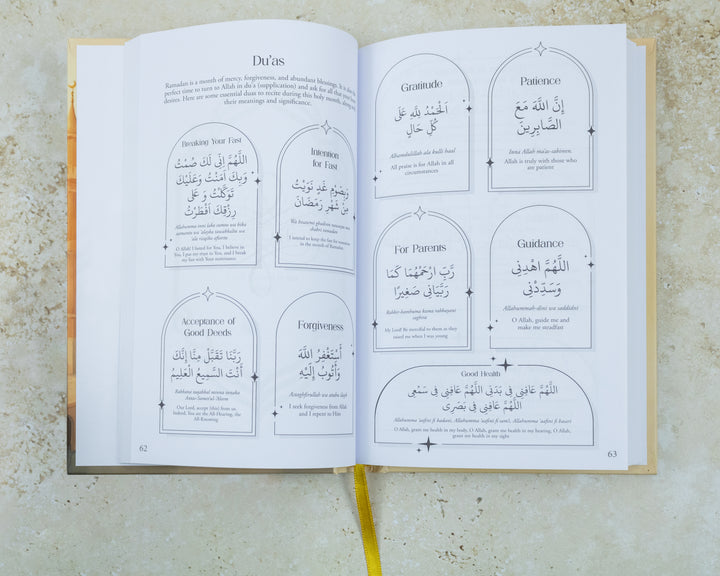 Du'as
Ramadan is a month of mercy, forgiveness, and abundant blessings. It is the
perfect time to turn to Allah in du'a (supplication) and ask for all that your heart
desires. Here are some essential duas to recite during this holy month, along with
their meanings and significance.
Breaking Your Fast
اللَّهُمَّ اِنِّى لَكَ صُمْتُ
وَبِكَ اٰمَنْتُ وَعَلَيْكَ
تَوَكَّلْتُ وَ عَلَى
رِزْقِكَ اَفْطَرْتُ
Allahumma inni laka sumtu wa bika
aamantu wa 'alayka tawakkaltu wa
'ala rizqika aftartu
O Allah! I fasted for You, I believe in
You, I put my trust in You, and I break
my fast with Your sustenance.
Intention
for Fast
وَبِصَوْمِ غَدٍ نَوَيْتُ
مِنْ شَهْرِ رَمَضَانَ
Wa bisawmi ghadinn nawaytu min
shahri ramadan
I intend to keep the fast for tomorrow
in the month of Ramadan.
Acceptance of
Good Deeds
رَبَّنَا تَقَبَّلْ مِنَّا إِنَّكَ
أَنْتَ السَّمِيعُ الْعَلِيمُ
Rabbana taqabbal minna innaka
Antas-Samee'ul-'Aleem
Our Lord, accept (this) from us.
Indeed, You are the All-Hearing, the
All-Knowing
Forgiveness
أَسْتَغْفِرُ اللَّهَ
وَأَتُوبُ إِلَيْهِ
Astaghfirullah wa atubu ilayh
I seek forgiveness from Allah
and I repent to Him
62
Gratitude
اَلْحَمْدُ لِلَّهِ عَلَى
كُلِّ حَالٍ
Alhamdulillah ala kulli haal
All praise is for Allah in all
circumstances
Patience
إِنَّ اللَّهَ مَعَ
الصَّابِرِينَ
Inna Allah ma'as-sabireen.
Allah is truly with those who
are patient
For Parents
رَبِّ ارْحَمْهُمَا كَمَا
رَبَّيَانِي صَغِيرًا
Rabbir-hamhuma kama rabbayani
saghira
My Lord! Be merciful to them as they
raised me when I was young
Guidance
اللَّهُمَّ اهْدِنِي
وَسَدِّدْنِي
Allahumman-dini wa saddidni
O Allah, guide me and
make me steadfast
Good Health
اللَّهُمَّ عَافِنِي فِي بَدَنِي اللَّهُمَّ عَافِنِي فِي سَمْعِي
اللَّهُمَّ عَافِنِي فِي بَصَرِي
Allahumma 'aafini fi badani, Allahumma 'aafini fi sam'i, Allahumma 'aafini fi basari
O Allah, grant me health in my body, O Allah, grant me health in my hearing, O Allah,
grant me health in my sight
63